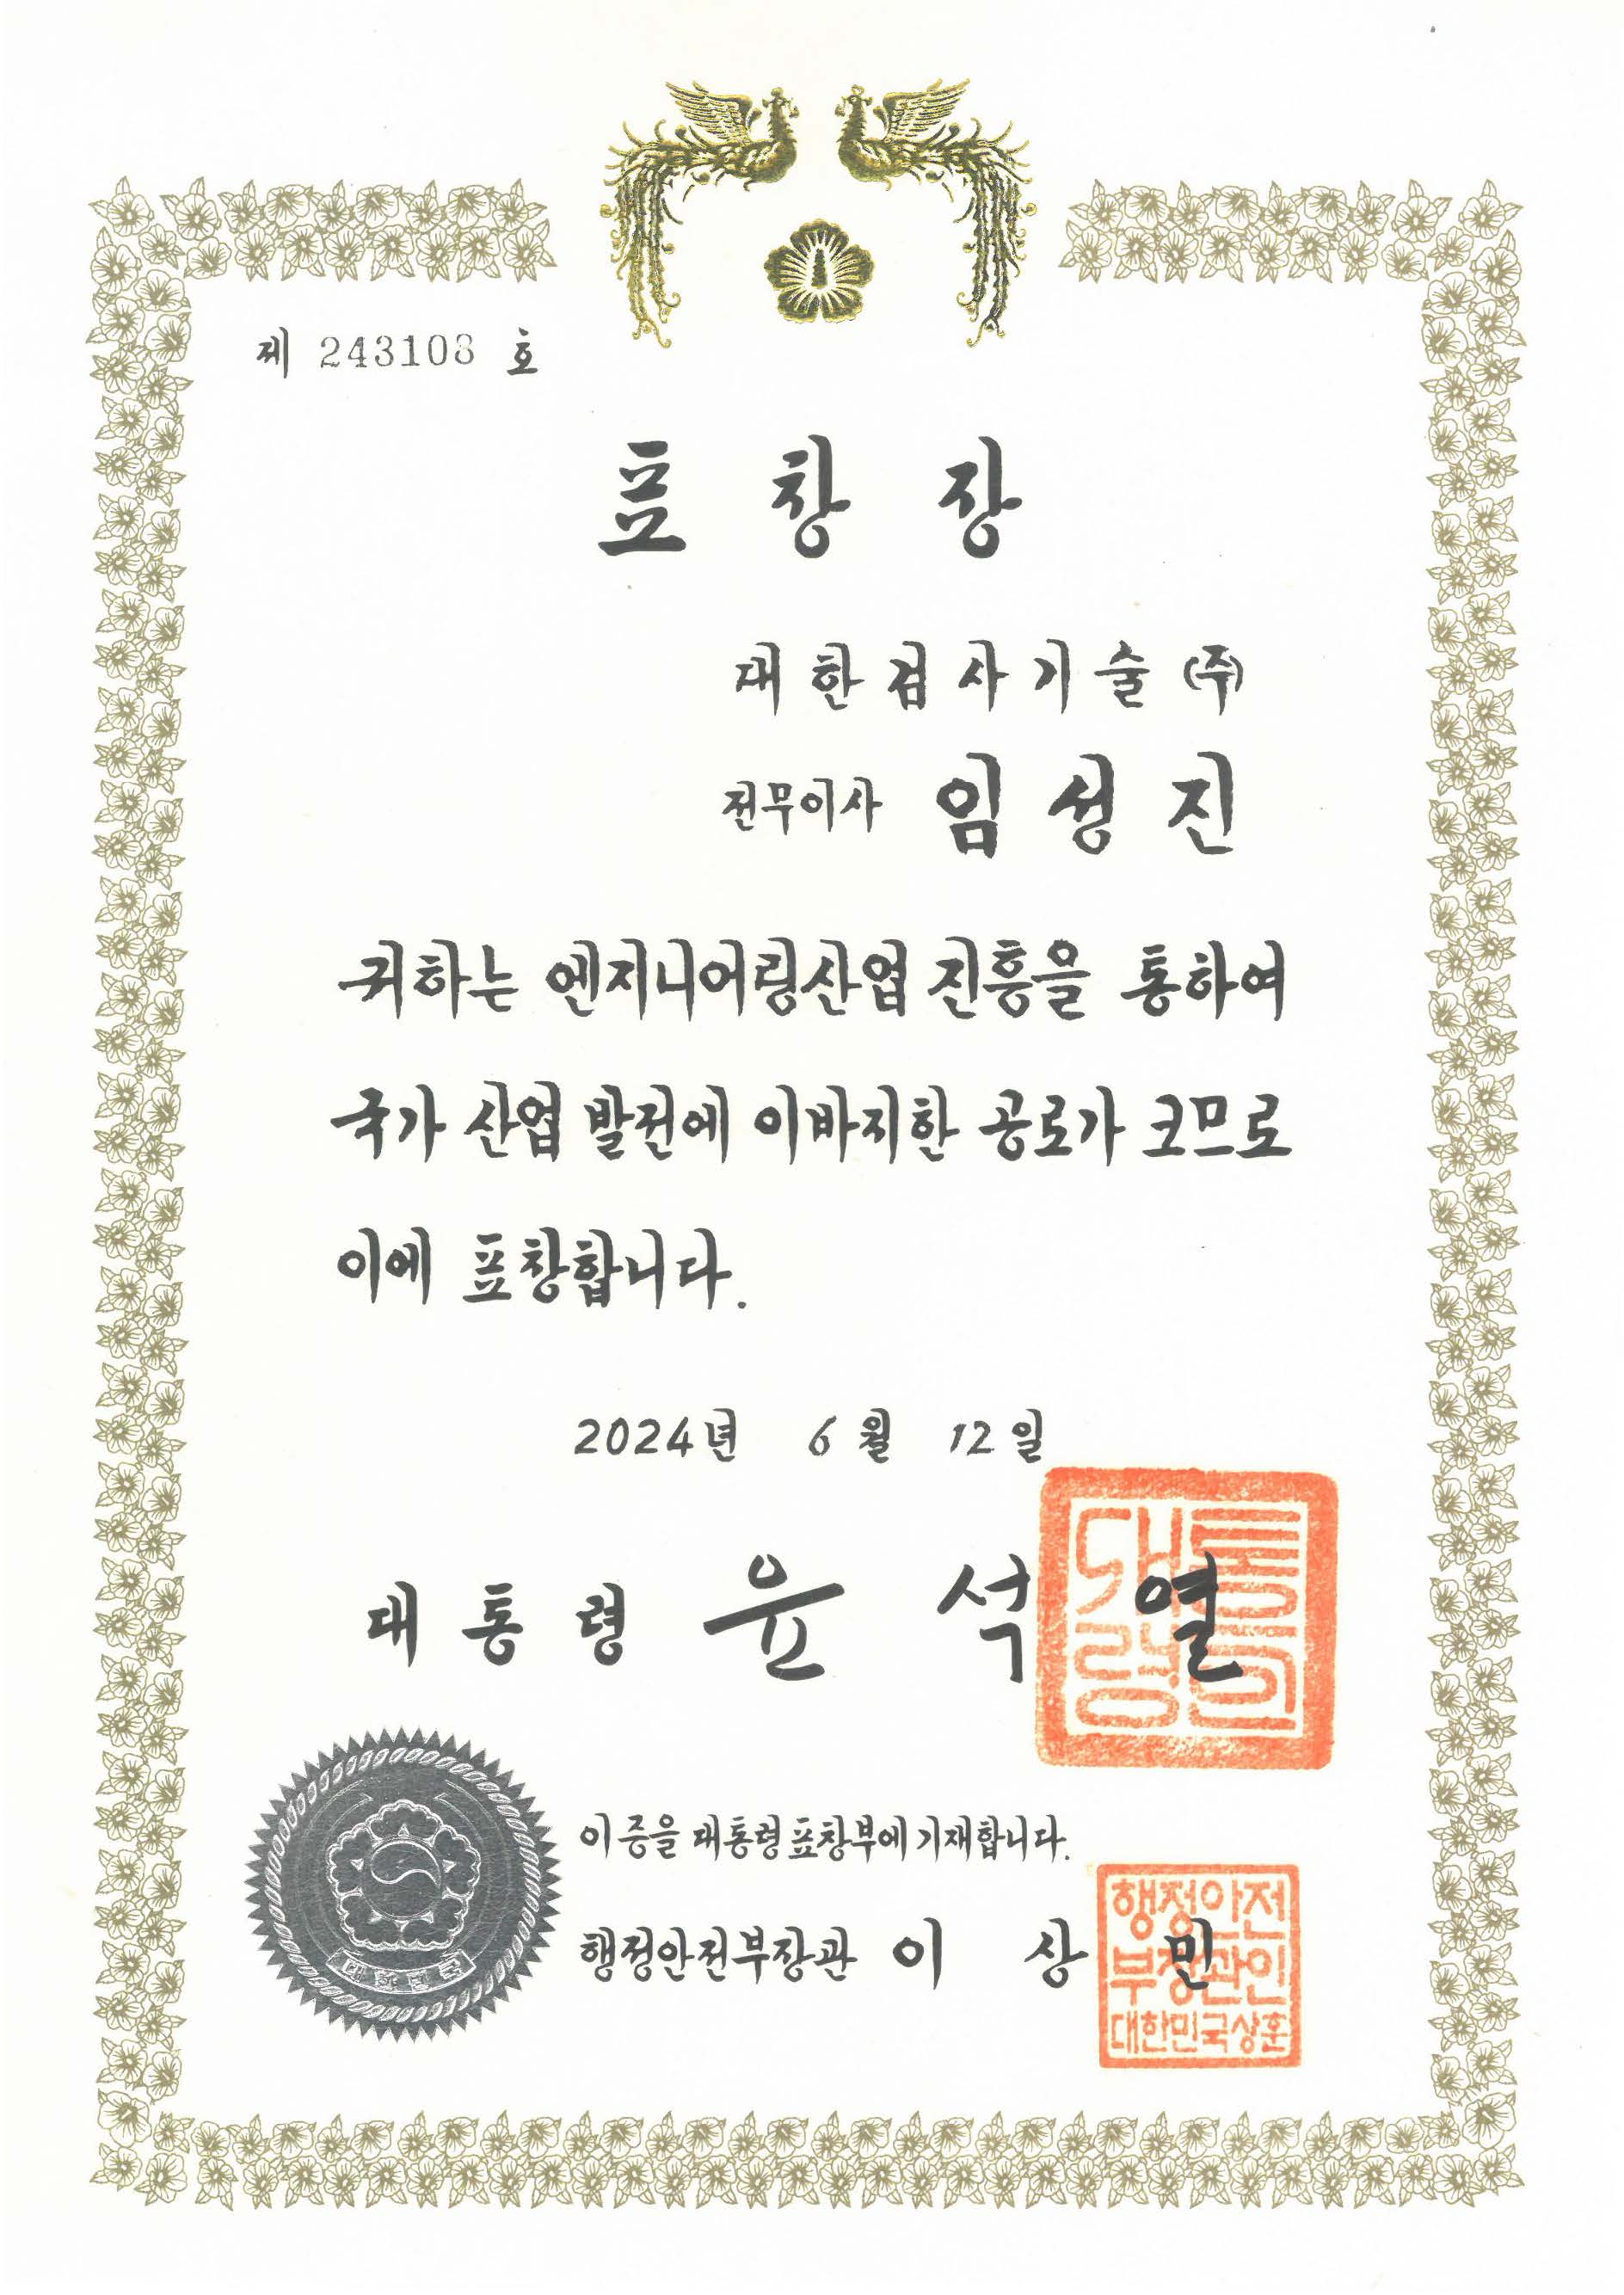 제 243108 호
표 창 장
대한검사기술(주)
전무이사 임성진
귀하는 엔지니어링산업 진흥을 통하여
국가 산업 발전에 이바지한 공로가 크므로
이에 표창합니다.
2024년 6월 12일
대통령 윤석열
대통령의인
이 증을 대통령표창부에 기재합니다.
행정안전부장관 이상민
행정안전
부장관인
대한민국상훈
대한민국